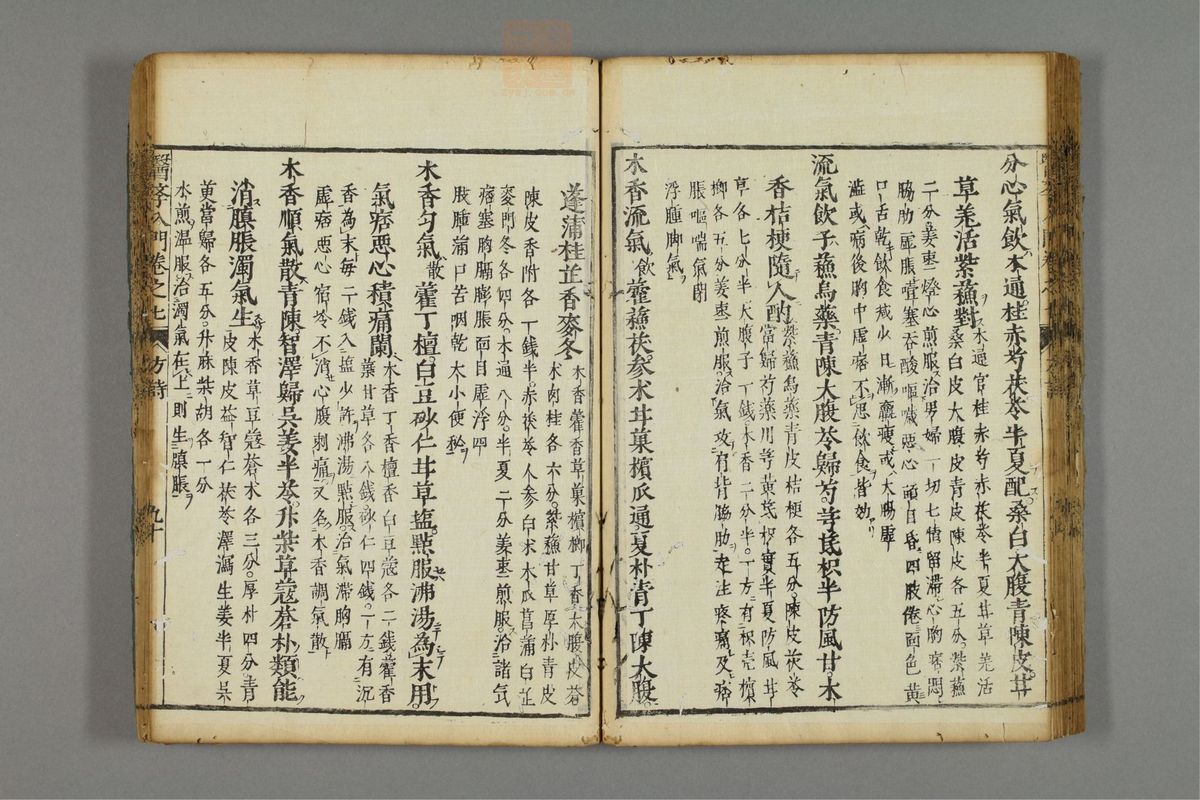 分心氣飲木通桂赤芍茯苓半夏配桑白大腹青陳皮甘
草羗活紫蘓對
木通官桂赤芍赤茯苓半夏甘草羗活
桑白皮大腹皮青皮陳皮各五分紫蘓
二分姜棗燈心煎服治男婦一切七情留滯心胸痞悶
脇肋虛脹噎塞吞酸嘔噦惡心頭目昏四肢倦面色黃
口舌乾飲食減少日漸羸瘦或大腸虛
澁或病後胸中虛痞不思飲食皆効
流氣飲子蘓烏藥青陳大腹苓歸芍芎芪枳半防風甘木
香桔梗隨人酌
紫蘓烏藥青皮桔梗各五分陳皮茯苓
當歸芍藥川芎黃芪枳實半夏防風甘
草各七分半大腹子一錢木香二分半一方有枳壳檳
榔各五分姜棗煎服治氣攻肩背脇肋走注疼痛及痞
脹嘔喘氣閉
浮腫脚氣
木香流氣飲藿蘓茯參术甘菓檳瓜通夏朴青丁陳大腹
蓬蒲桂芷香麥冬
木香藿香草菓檳榔丁香大腹皮莪
朮肉桂各六分紫蘓甘草厚朴青皮
陳皮香附各一錢半赤茯苓人參白术木瓜菖蒲白芷
麥門冬各四分木通八分半夏二分姜棗煎服治諸氣
痞塞胸膈膨脹面目虛浮四
肢腫滿口苦咽乾大小便秘
木香勻氣散藿丁檀白豆砂仁甘草塩點服沸湯為末用
氣痞惡心積痛闌
木香丁香檀香白豆蔻各二錢藿香
葉甘草各八錢砂仁四錢一方有沉
香為末每二錢入塩少許沸湯點服治氣滯胸膈
虛痞惡心宿冷不消心腹刺痛又名木香調氣散
木香順氣散青陳智澤歸吳姜半苓升柴草蔻蒼朴類能
消䐜脹濁氣生
木香草豆蔻蒼术各三分厚朴四分青
皮陳皮益智仁茯苓澤瀉生姜半夏吳
萸當歸各五分升麻柴胡各一分
水煎温服治濁氣在上則生䐜脹
醫學入門卷之七
方詩
九十